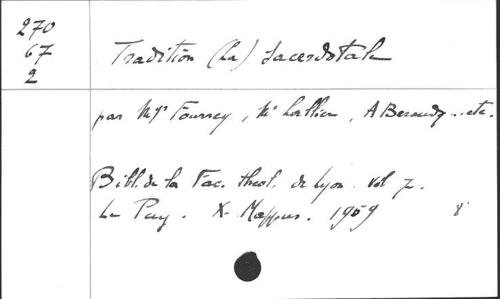 270
67
2
Tradition (La) sacerdotale
par Mgr Fourrey, A Beraudy .. etc.
Bibl. de la Fac. theol. de Lyon. vol 7.
Le Puy. X. Mappus. 1959 8°